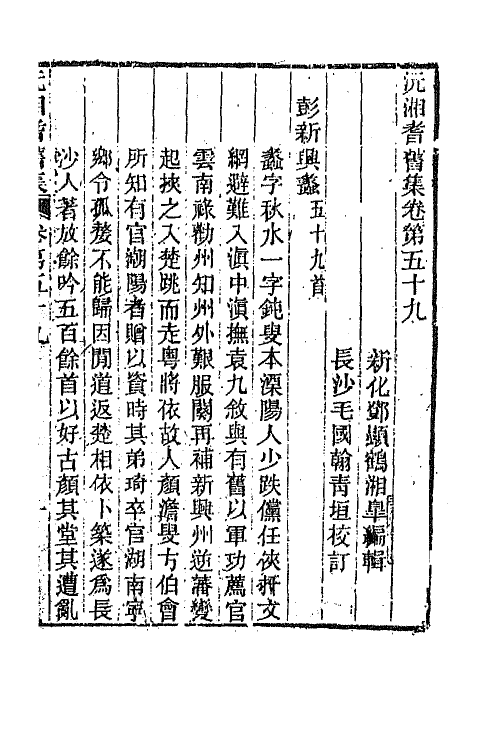 沅湘耆舊集卷第五十九
新化鄧顯鶴湘皋編輯
長沙毛國翰青垣校訂
彭新興蠡五十九首
蠡字秋水一字鈍叟本溧陽人少跌儻任俠扞文
網避難入滇中滇撫袁九敘與有舊以軍功薦官
雲南祿勸州知州外艱服闋再補新興州逆藩變
起挾之入楚跳而走粵將依故人顏澹叟方伯會
所知有官湖陽者贈以資時其弟琦卒官湖南寧
鄉令孤嫠不能歸因閒道返楚相依卜築遂為長
沙人著放餘吟五百餘首以好古顏其堂其遭亂